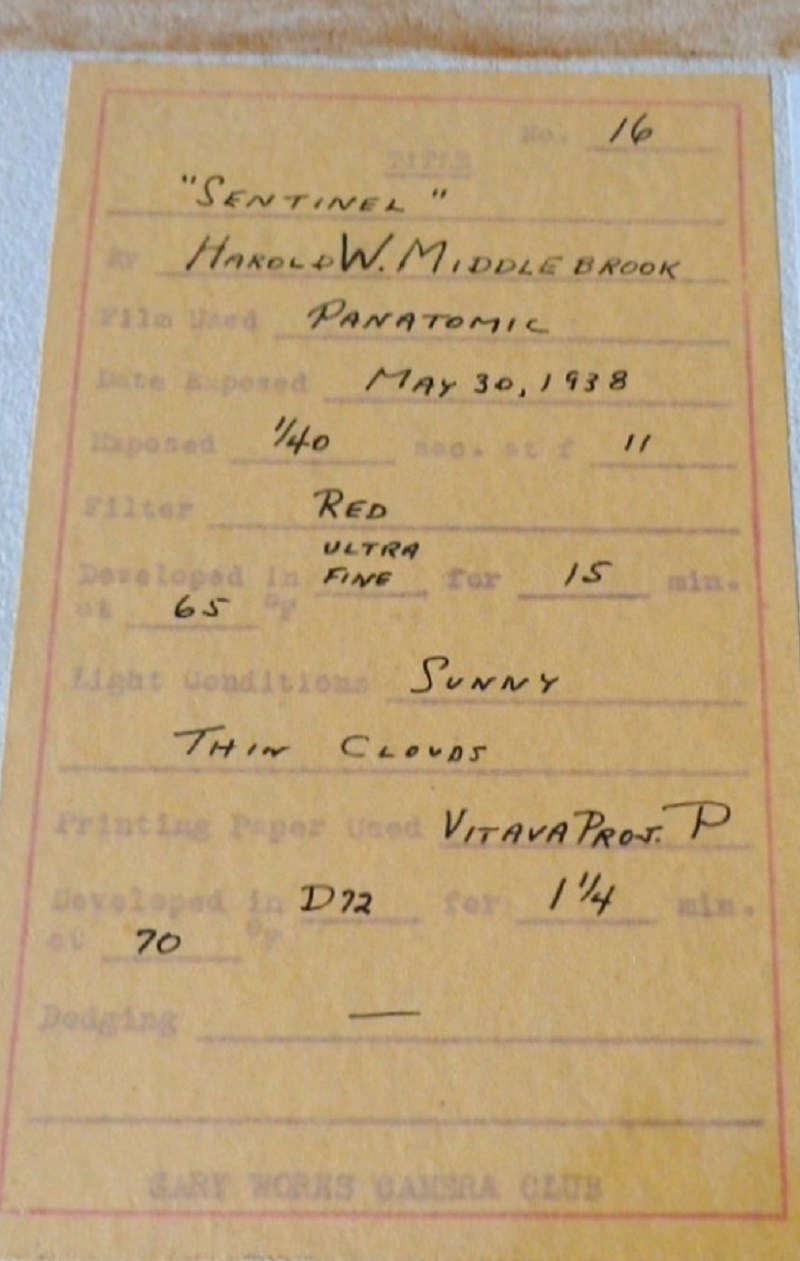 No. 16
TITLE
"SENTINEL"
By HAROLD W. MIDDLEBROOK
Film Used PANATOMIC
Date Exposed MAY 30, 1938
Exposed 1/40 sec. at f 11
Filter RED
ULTRA
Developed in FINE for 15 min.
at 65 °F
Light Conditions SUNNY
THIN CLOUDS
Printing Paper Used VITAVA PROJ. P
Developed in D72 for 1 1/4 min.
at 70 °F
Dodging —
GARY WORKS CAMERA CLUB